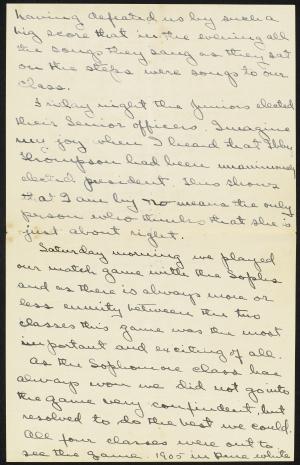 having defeated us by such a
big score that in the evening all
the songs they sang as they sat
on the steps were songs to our
class.
Friday night the Juniors elected
their Senior officers. Imagine
my joy when I heard that
Thompson had been unanimously
elected president. This shows
that I am by no means the only
person who thinks that she is
just about right.
Saturday morning we played
our match game with the Sophs
and as there is always more or
less enmity between the two
classes this game was the most
important and exciting of all.
As the Sophomore class has
always won we did not go into
the game very confident, but
resolved to do the best we could.
All four classes were out to
see the game 1905 in pure white